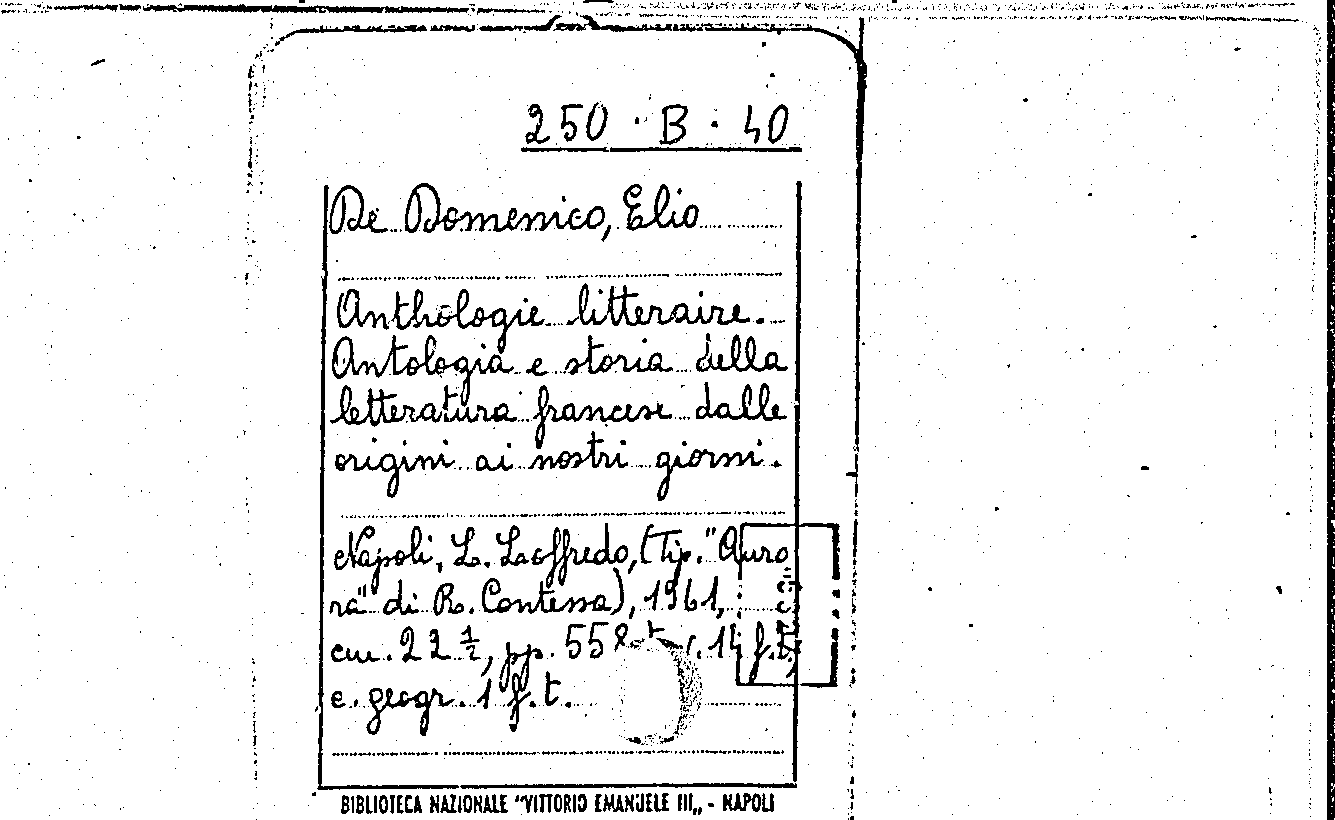 250 · B · 40
De Domenico, Elio
Anthologie litteraire.
Antologia e storia della
letteratura francese dalle
origini ai nostri giorni.
Napoli, L. Loffredo, (Tip. "Auro
ra" di R. Contessa), 1961,
cm. 22 ½, pp. 558 t. 14 f.t.,
c. geogr. 1 f.t.
BIBLIOTECA NAZIONALE "VITTORIO EMANUELE III„ - NAPOLI